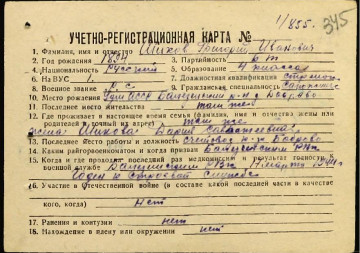 1/855.
345
УЧЕТНО-РЕГИСТРАЦИОННАЯ КАРТА №
1. Фамилия, имя и отчество Шиков Григорий Иванович
2. Год рождения 1894 3. Партийность б/п
4. Национальность Русский 5. Образование 4 класса
6. На ВУС 1. 7. Должностная квалификация стрелок
8. Военное звание р.с. 9. Гражданская специальность
10. Место рождения Удм АССР Балезинский р-н
11. Последнее место жительства там же
12. Где проживает в настоящее время семья (фамилия, имя и отчество жены или
родителей и точный их адрес) там же
жена: Шикова Дария
13. Последнее место работы и должность
14. Каким райвоенкоматом и когда призван Балезинским РВК
15. Когда и где проходил последний раз медкомиссию и результат годности к
военной службе Балезинский РВК
Годен к строевой службе
16. Участие в Отечественной войне (в составе какой последней части в качестве
кого, когда) нет
17. Ранения и контузии нет
18. Нахождение в плену или окружении нет.